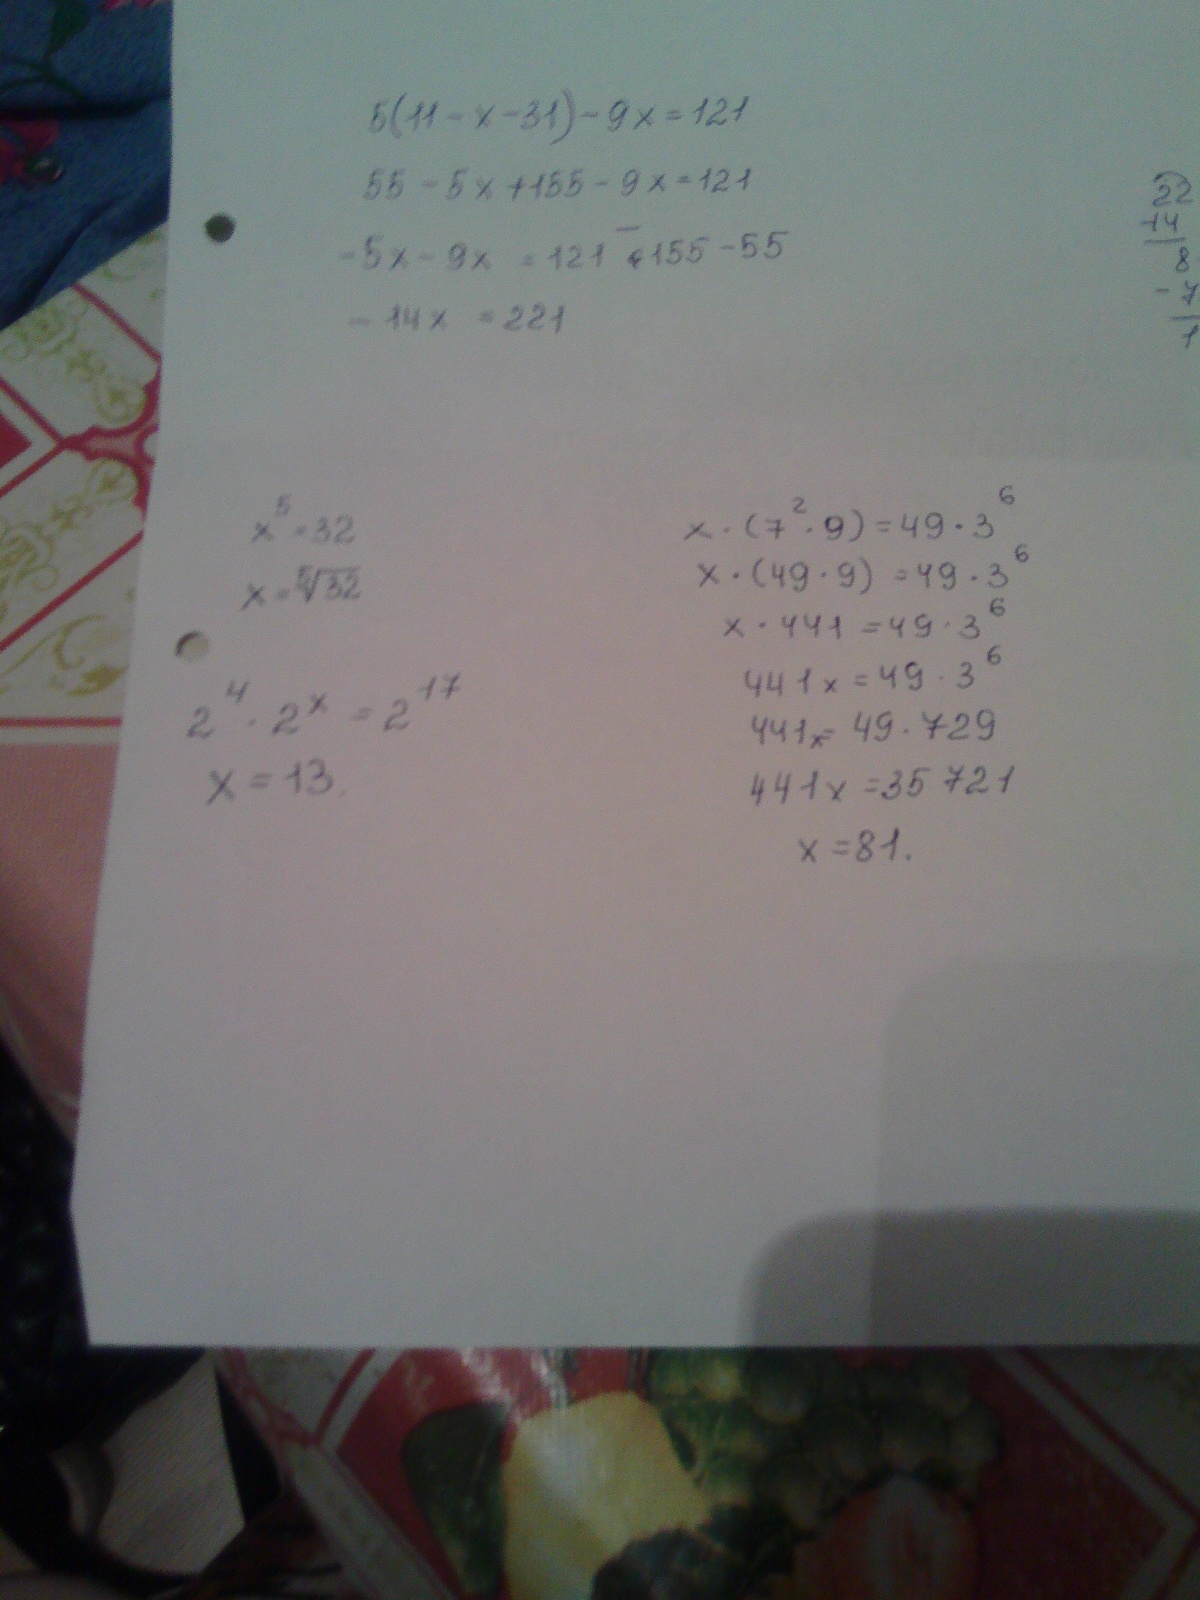 5(11 - x - 31) - 9x = 121
55 - 5x + 155 - 9x = 121
-5x - 9x = 121 - 155 - 55
- 14x = 221
22
-14
8
- 7
1
x⁵ = 32
x = ⁵√32
2⁴ · 2ˣ = 2¹⁷
x = 13.
x · (7² · 9) = 49 · 3⁶
x · (49 · 9) = 49 · 3⁶
x · 441 = 49 · 3⁶
441x = 49 · 3⁶
441x = 49 · 729
441x = 35 721
x = 81.